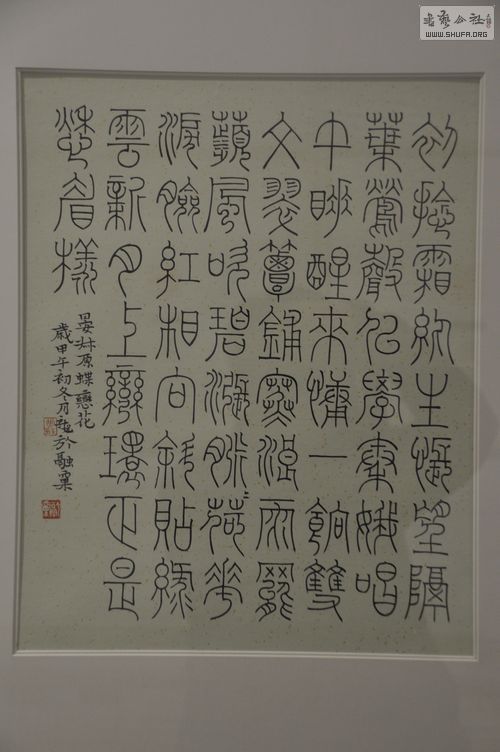 書藝公社
WWW.SHUFA.ORG
初撚霜紈生悵望隔
葉鶯聲似學秦娥唱
午睡醒來慵一餉雙
文翠簟鋪寒浪雨罷
蘋風吹碧漲脈〻荷花
淚臉紅相向斜貼綠
雲新月上彎環正是
愁眉樣
晏叔原蝶戀花
歲甲午初冬月於融